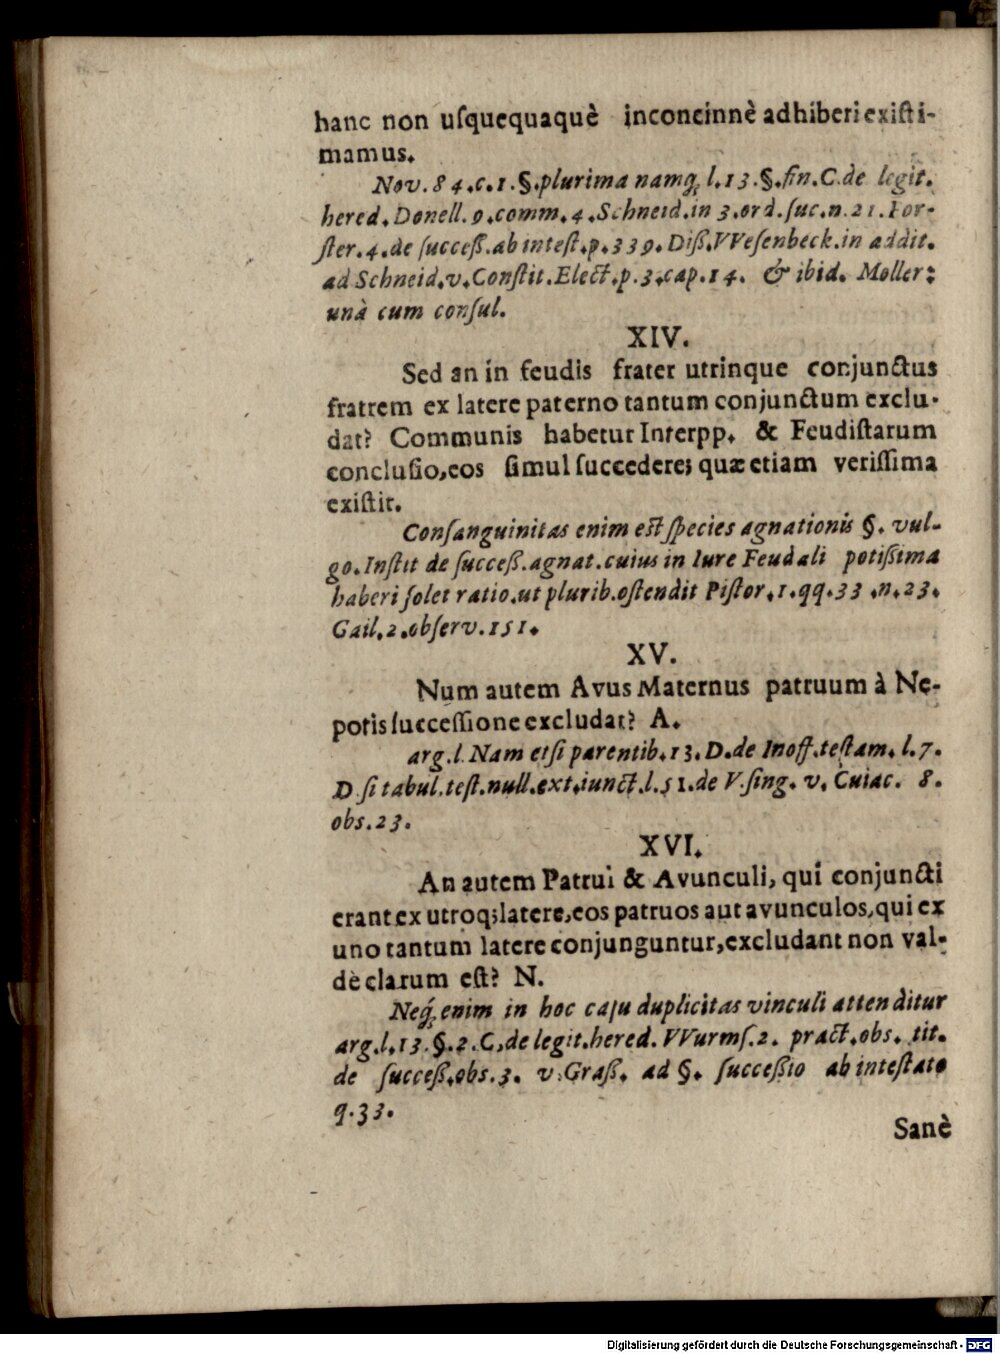 hanc non uſquequaquè inconcinnè adhiberi exiſti-
mamus.
Nov. 84. c. 1. §. plurima namq; l. 13. §. fin. C. de legit.
hered. Donell. 9. comm. 4. Schneid. in 3. ord. ſuc. n. 21. For-
ſter. 4. de ſucceſſ. ab inteſt. p. 339. Diſſ. VVeſenbeck. in addit.
ad Schneid. v. Conſtit. Elect. p. 3. cap. 14. & ibid. Moller:
unà cum conſul.
XIV.
Sed an in feudis frater utrinque conjunctus
fratrem ex latere paterno tantum conjunctum exclu-
dat? Communis habetur Interpp. & Feudiſtarum
concluſio, eos ſimul ſuccedere; quæ etiam veriſſima
exiſtit.
Conſanguinitas enim eſt ſpecies agnationis §. vul-
go. Inſtit de ſucceſſ. agnat. cuius in Iure Feudali potiſſima
haberi ſolet ratio. ut plurib. oſtendit Piſtor. 1. qq. 33 . n. 23.
Gail. 2. obſerv. 151.
XV.
Num autem Avus Maternus patruum à Ne-
potis ſucceſſione excludat? A.
arg. l. Nam etſi parentib. 13. D. de Inoff. teſtam. l. 7.
D ſi tabul. teſt. null. ext. iunct. l. 51. de V. ſing. v. Cuiac. 8.
obs. 23.
XVI.
An autem Patrui & Avunculi, qui conjuncti
erant ex utroq; latere, eos patruos aut avunculos, qui ex
uno tantum latere conjunguntur, excludant non val-
dè clarum eſt? N.
Neq; enim in hoc caſu duplicitas vinculi attenditur
arg. l. 13. §. 2. C, de legit. hered. VVurmſ. 2. pract. obs. tit.
de ſucceſſ. obs. 3. v. Graſſ. ad §. ſucceſſio ab inteſtato
q. 33.
Sanè
Digitalisierung gefördert durch die Deutsche Forschungsgemeinschaft - DFG